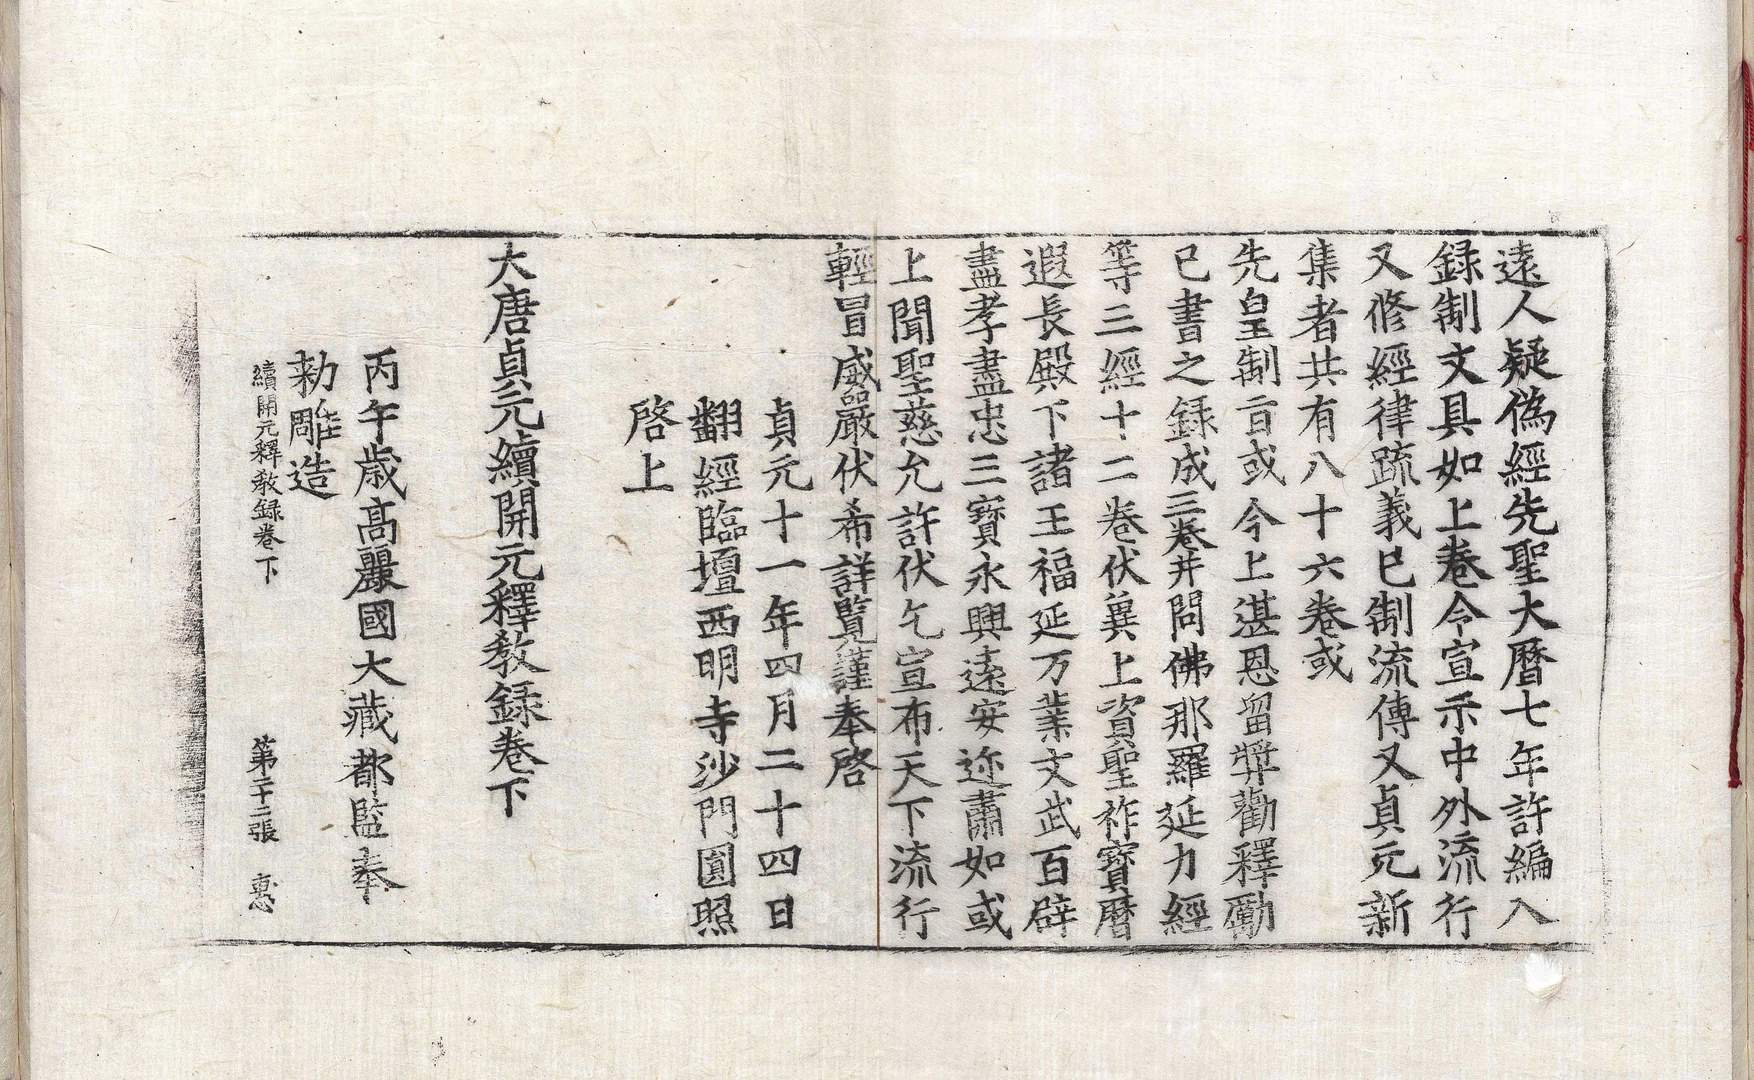 遠人疑偽經先聖大曆七年許編入
録制文具如上卷令宣示中外流行
又修經律䟽義已制流傳又貞元新
集者共有八十六卷或
先皇制旨或今上湛恩留弊勸釋勵
已書之録成三卷并問佛那羅延力經
等三經十二卷伏冀上資聖祚寶曆
遐長殿下諸王福延万葉文武百辟
盡孝盡忠三寶永興遠安迩肅如或
上聞聖慈允許伏乞宣布天下流行
輕冒威嚴伏希詳覧謹奉啓
貞元十一年四月二十四日
翻經臨壇西明寺沙門圓照
啓上
大唐貞元續開元釋教録卷下
丙午歳高麗國大藏都監奉
勅雕造
續開元釋教録卷下 第二十二張 惠